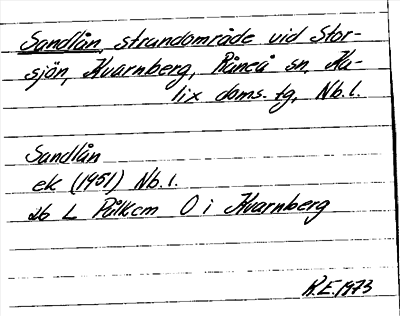 Sandlån, strandområde vid Stor-
sjön, Kvarnberg, Råneå sn, Ka-
lix doms. tg, Nb.l.
Sandlån
ek (1951) Nb.l.
2b L Pålkem O i Kvarnberg
R.E. 1973